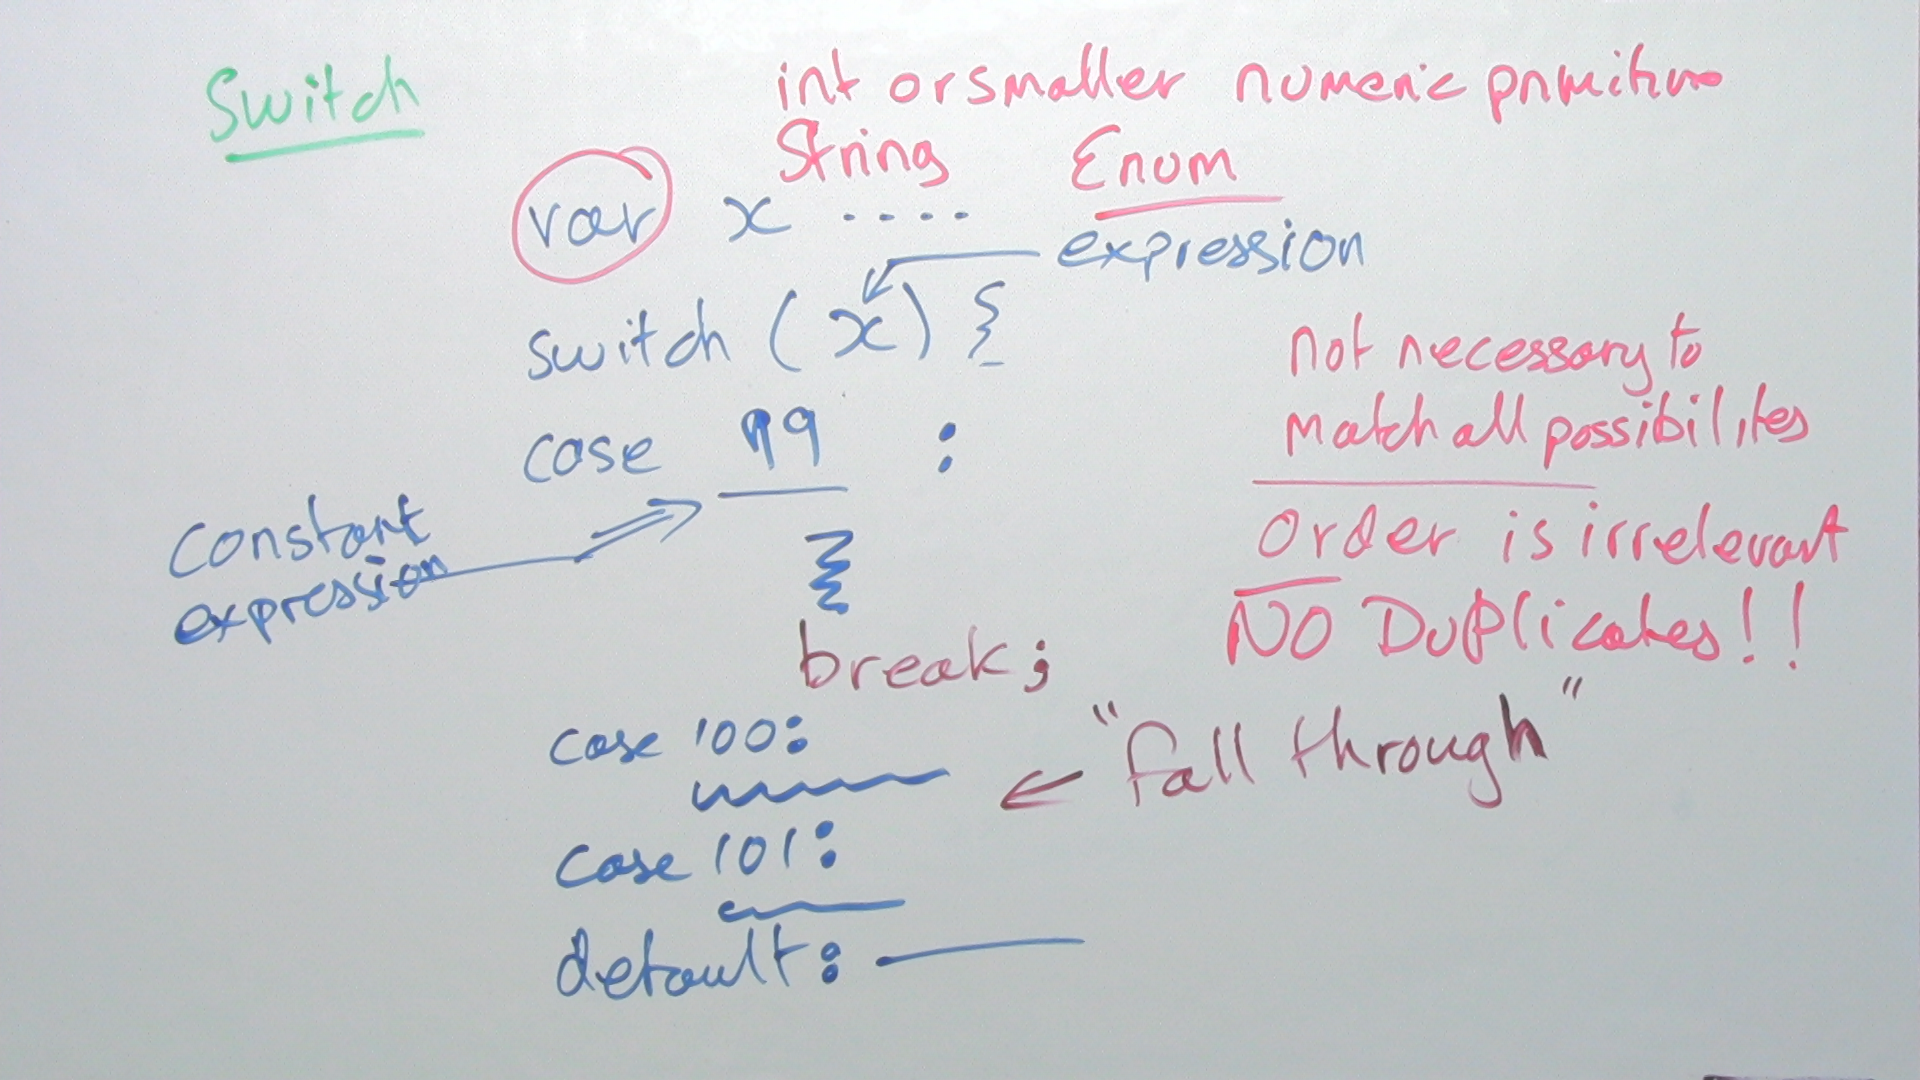 Switch
int or smaller numeric primitive
String Enum
var x ....
expression
switch (x) {
not necessary to
match all possibilites
case 99 :
constant
expression
Order is irrelevant
NO Duplicates!!
break;
case 100:
"fall through"
case 101:
default: